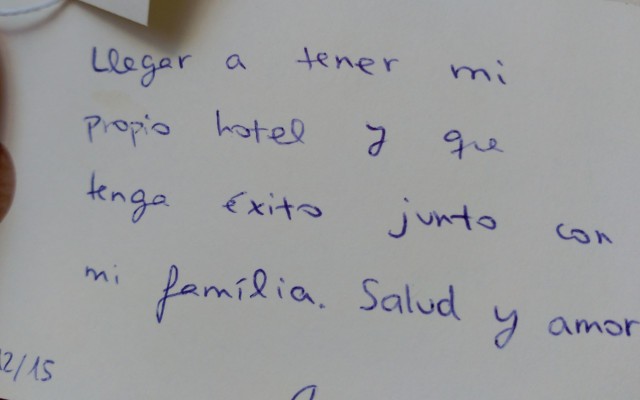 Llegar a tener mi
propio hotel y que
tenga éxito junto con
mi família. Salud y amor
2/15